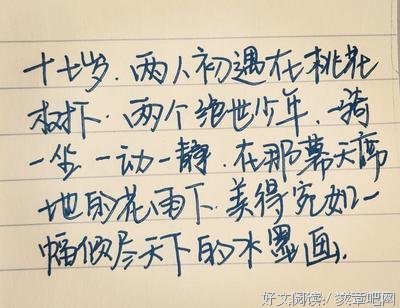 十七岁.两人初遇在桃花
树下.两个绝世少年.一骑
一坐 一动一静.在那幕天席
地的花雨下.美得宛如一
幅倾尽天下的水墨画.
好文阅读/ 文章吧网